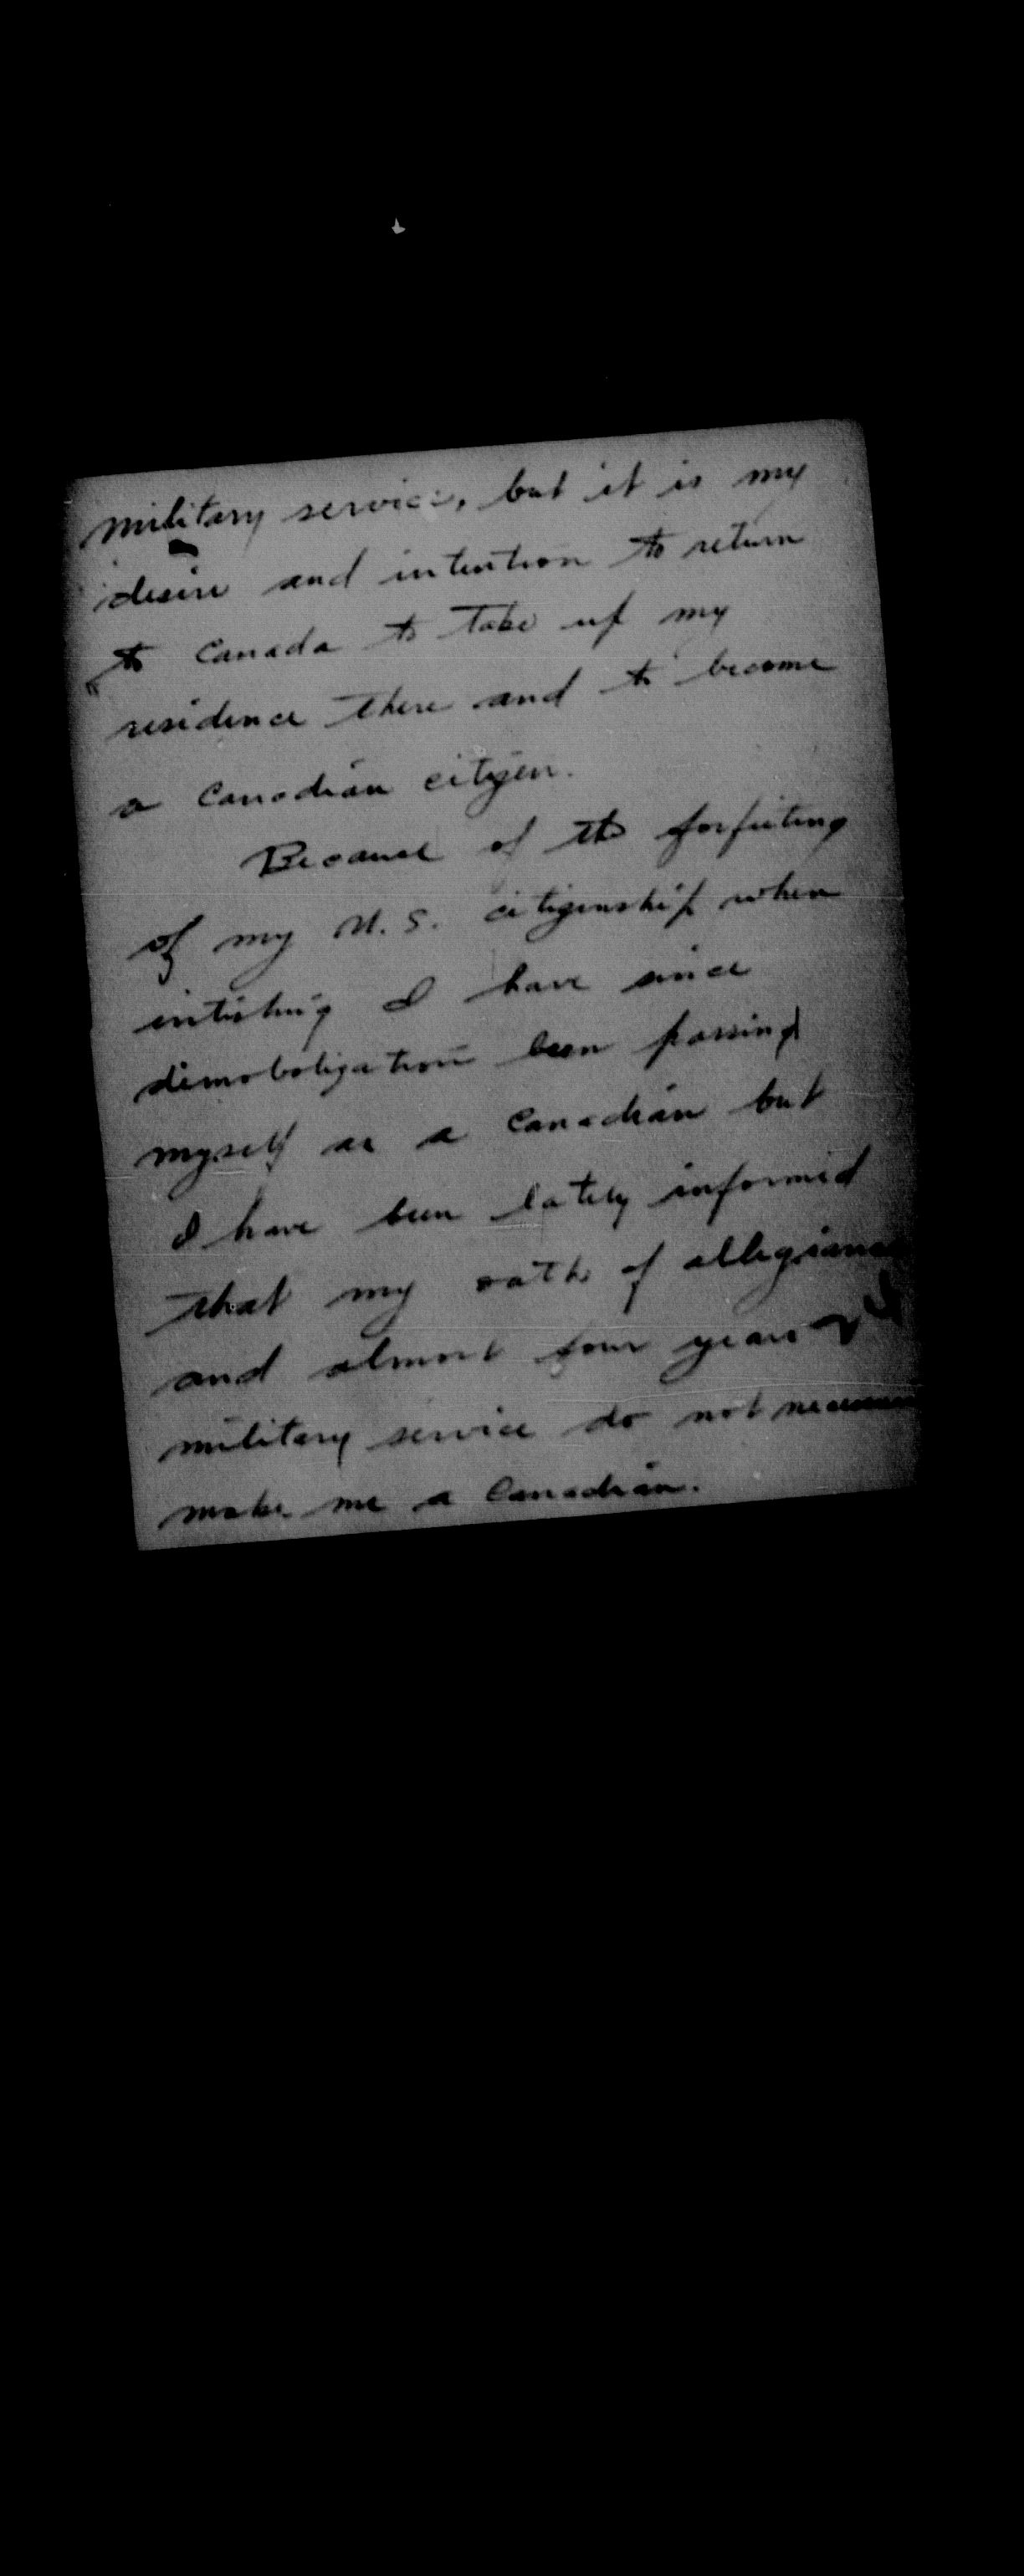 military service, but it is my
desire and intention to return
to Canada to take up my
residence there and to become
a Canadian citizen.
Because of the forfeiting
of my U.S. citizenship when
enlisting I have since
demobolization been passing
myself as a Canadian but
I have been lately informed
that my oath of allegiance
and almost four years
military service do not
make me a Canadian.